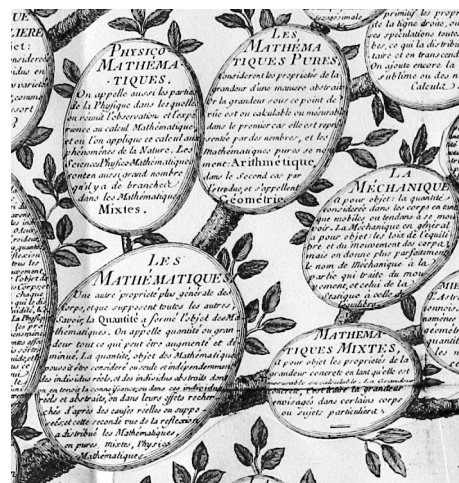 UE
LIERE
PHYSICO
MATHÉMA
TIQUES.
On appelle aussi les parties
de la Physique dans les quelles
on réunit l'observation et l'expé
rience au calcul Mathématique
et ou l'on applique ce calcul aux
phénomenes de la Nature. Les
Sciences Physico Mathématiques
sont en aussi grand nombre
qu'il y a de branches
dans les Mathématiques
Mixtes.
LES
MATHÉMA
TIQUES PURES,
Considerent les proprietés de la
grandeur d'une maniere abstraite
Or la grandeur sous ce point de
vüe est ou calculable ou mésurable
dans le premier cas elle est repré
sentée par des nombres, et les
Mathématiques pures se no
ment Arithmétique,
dans le Second cas par
l'étendue, et s'appellent
Géometrie.
primitif les propr
de la ligne droite, ou
ses spéculations toutes
bes, ce qui la distribu
taire et en transcend
On ajoute encore la
sublime ou des n
Calculs
LA
MÉCHANIQUE
a pour objet: la quantité
considerée dans les corps en tant
que mobiles ou tendans a se mou
voir. La Méchanique en général
a pour objet les loix de l'équili
bre et du mouvement des corps;
mais on donne plus parfaitement
le nom de Méchanique à la
partie qui traite du mou
vement, et celui de la
Statique a celle de
l'equilibre.
LES
MATHÉMATIQUES
Une autre proprieté plus générale des
Corps, et que supposent toutes les autres
Savoir, la Quantité a formé l'objet des Ma
thématiques. On appelle quantité ou gran
deur tout ce qui peut être augmenté et di
minué. La quantité, objet des Mathématiques
pouvoit être considéré ou seule et independemment
des individus réels, et des individus abstraits dont
on tenoit la connoissance; ou dans ces individus
réels et abstraits, ou dans leurs effets recher
chés d'après des causes réelles ou suppo
sées; et cette seconde vue de la reflexion
a distribué les Mathématiques,
en pures, mixtes, Physico
Mathématiques.
MATHÉMA
TIQUES MIXTES,
a pour objet les proprietés de la
grandeur concrete en tant qu'elle est
mesurable ou calculable. La Grandeur
concrete, c'est à dire la grandeur
envisagée dans certains corps
ou sujets particuliers.